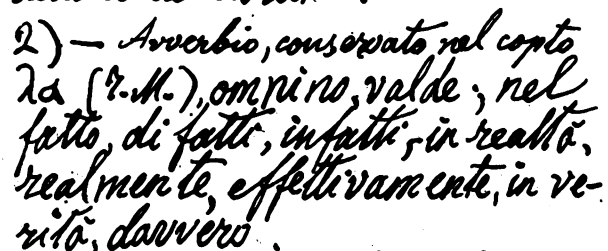 2) — Avverbio, conservato nel copto
λα (T.M.), ompino, valde; nel
fatto, di fatti, infatti, in realtà,
realmente, effettivamente, in ve-
rità, davvero